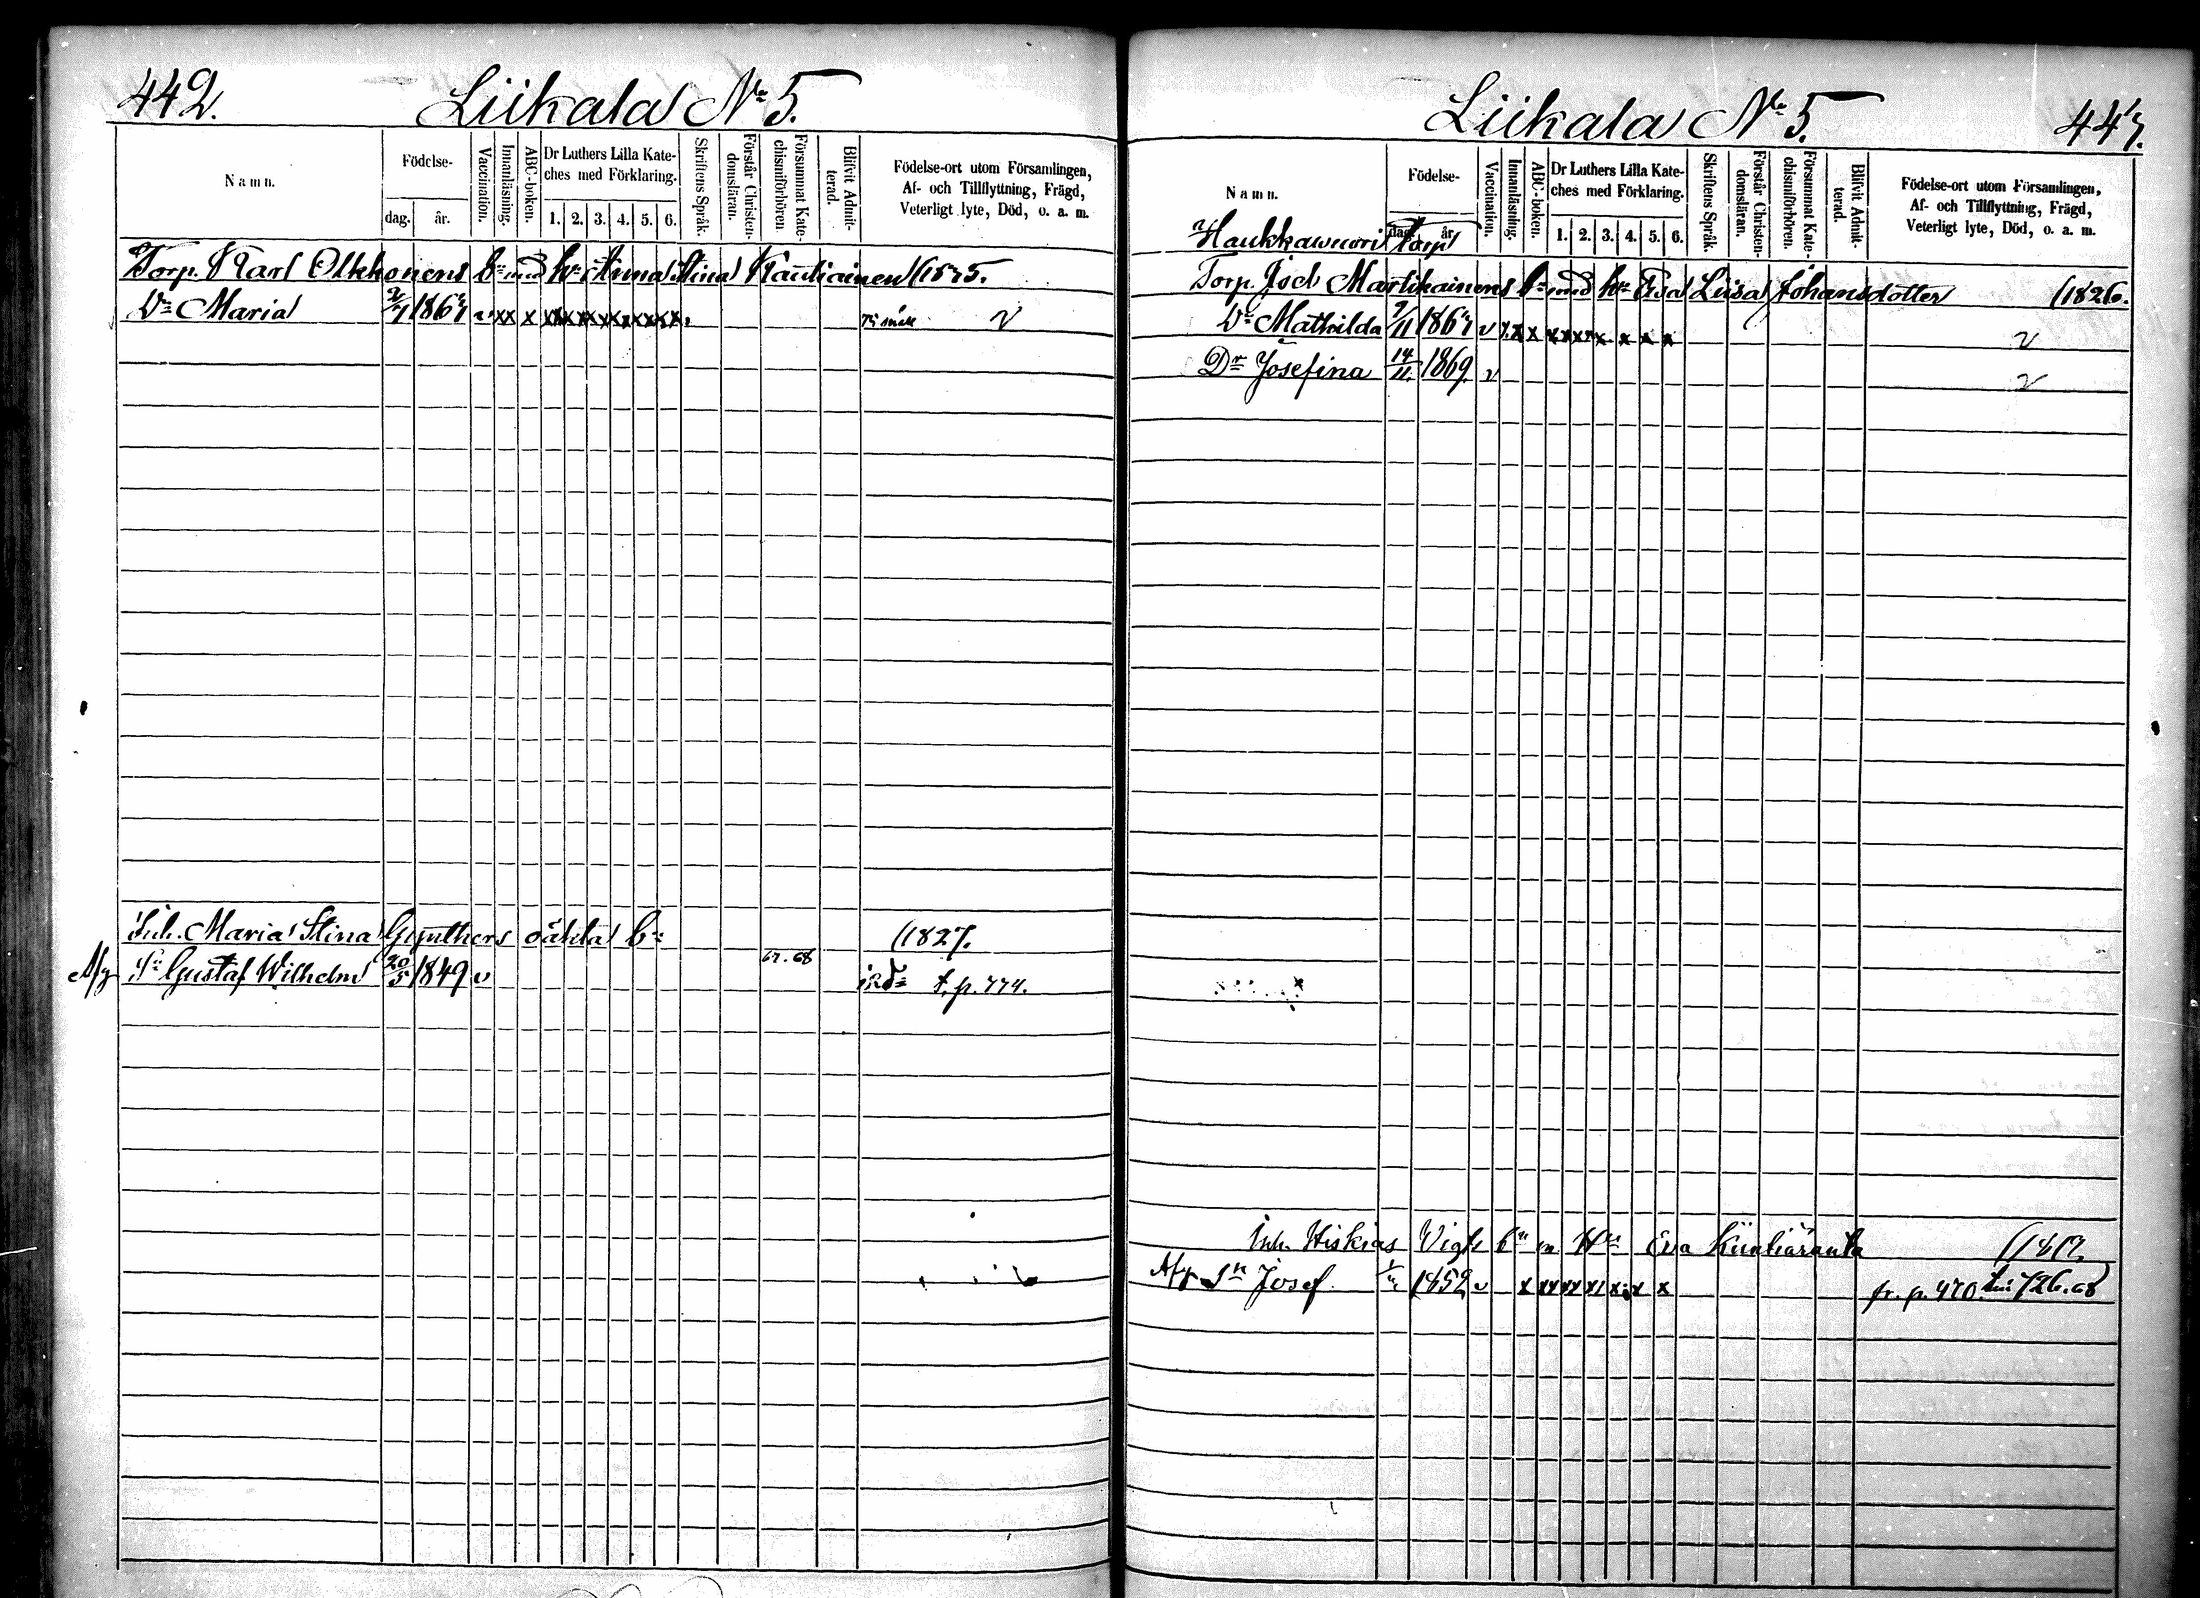 442.
Liikala No 5.
Namn.
Födelse-
dag.
år.
Vaccination.
Innanläsning.
ABC-boken.
Dr Luthers Lilla Kate-
ches med Förklaring.
1. 2. 3. 4. 5. 6.
Skriftens Språk.
Förstår Christen-
domsläran.
Försummat Kate-
chismiförhören
Blifvit Admit-
terad.
Födelse-ort utom Församlingen,
Af- och Tillflyttning, Frägd,
Veterligt lyte, Död, o. a. m.
Torp. Karl Olkkonens bn med hu Anna Stina Kautiainen
Dr Maria 2/7 1867 v xx x xxxxxxxxxxx v
Inh. Maria Stina Gynthers oäkta bn (1827.
67. 68
Afg Sn Gustaf Wilhelm 20/5 1849 v t. p. 774.
Liikala No 5.
447.
Namn.
Födelse-
dag.
år.
Vaccination.
Innanläsning.
ABC-boken.
Dr Luthers Lilla Kate-
ches med Förklaring.
1. 2. 3. 4. 5. 6.
Skriftens Språk.
Förstår Christen-
domsläran.
Försummat Kate-
chismiförhören.
Blifvit Admit-
terad.
Födelse-ort utom Församlingen,
Af- och Tillflyttning, Frägd,
Veterligt lyte, Död, o. a. m.
Haukkawuori torp
Torp. Martikainens bn med hu Eva Liisa Johansdotter (1826.
Dr Mathilda 9/11 1867 v x.x x xxxxx x x x v
Dr Josefina 14/11. 1869. v v
Inh. Hiskias Vigt bn m Hu Eva
Afg Sn Josef 1852 v x xx xx x x x x fr. p. 470. 726. 68